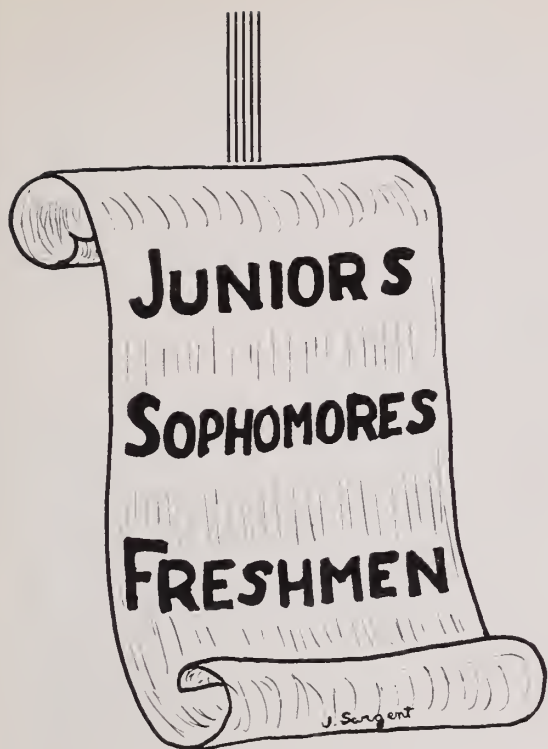 JUNIORS
SOPHOMORES
FRESHMEN
J. Sargent